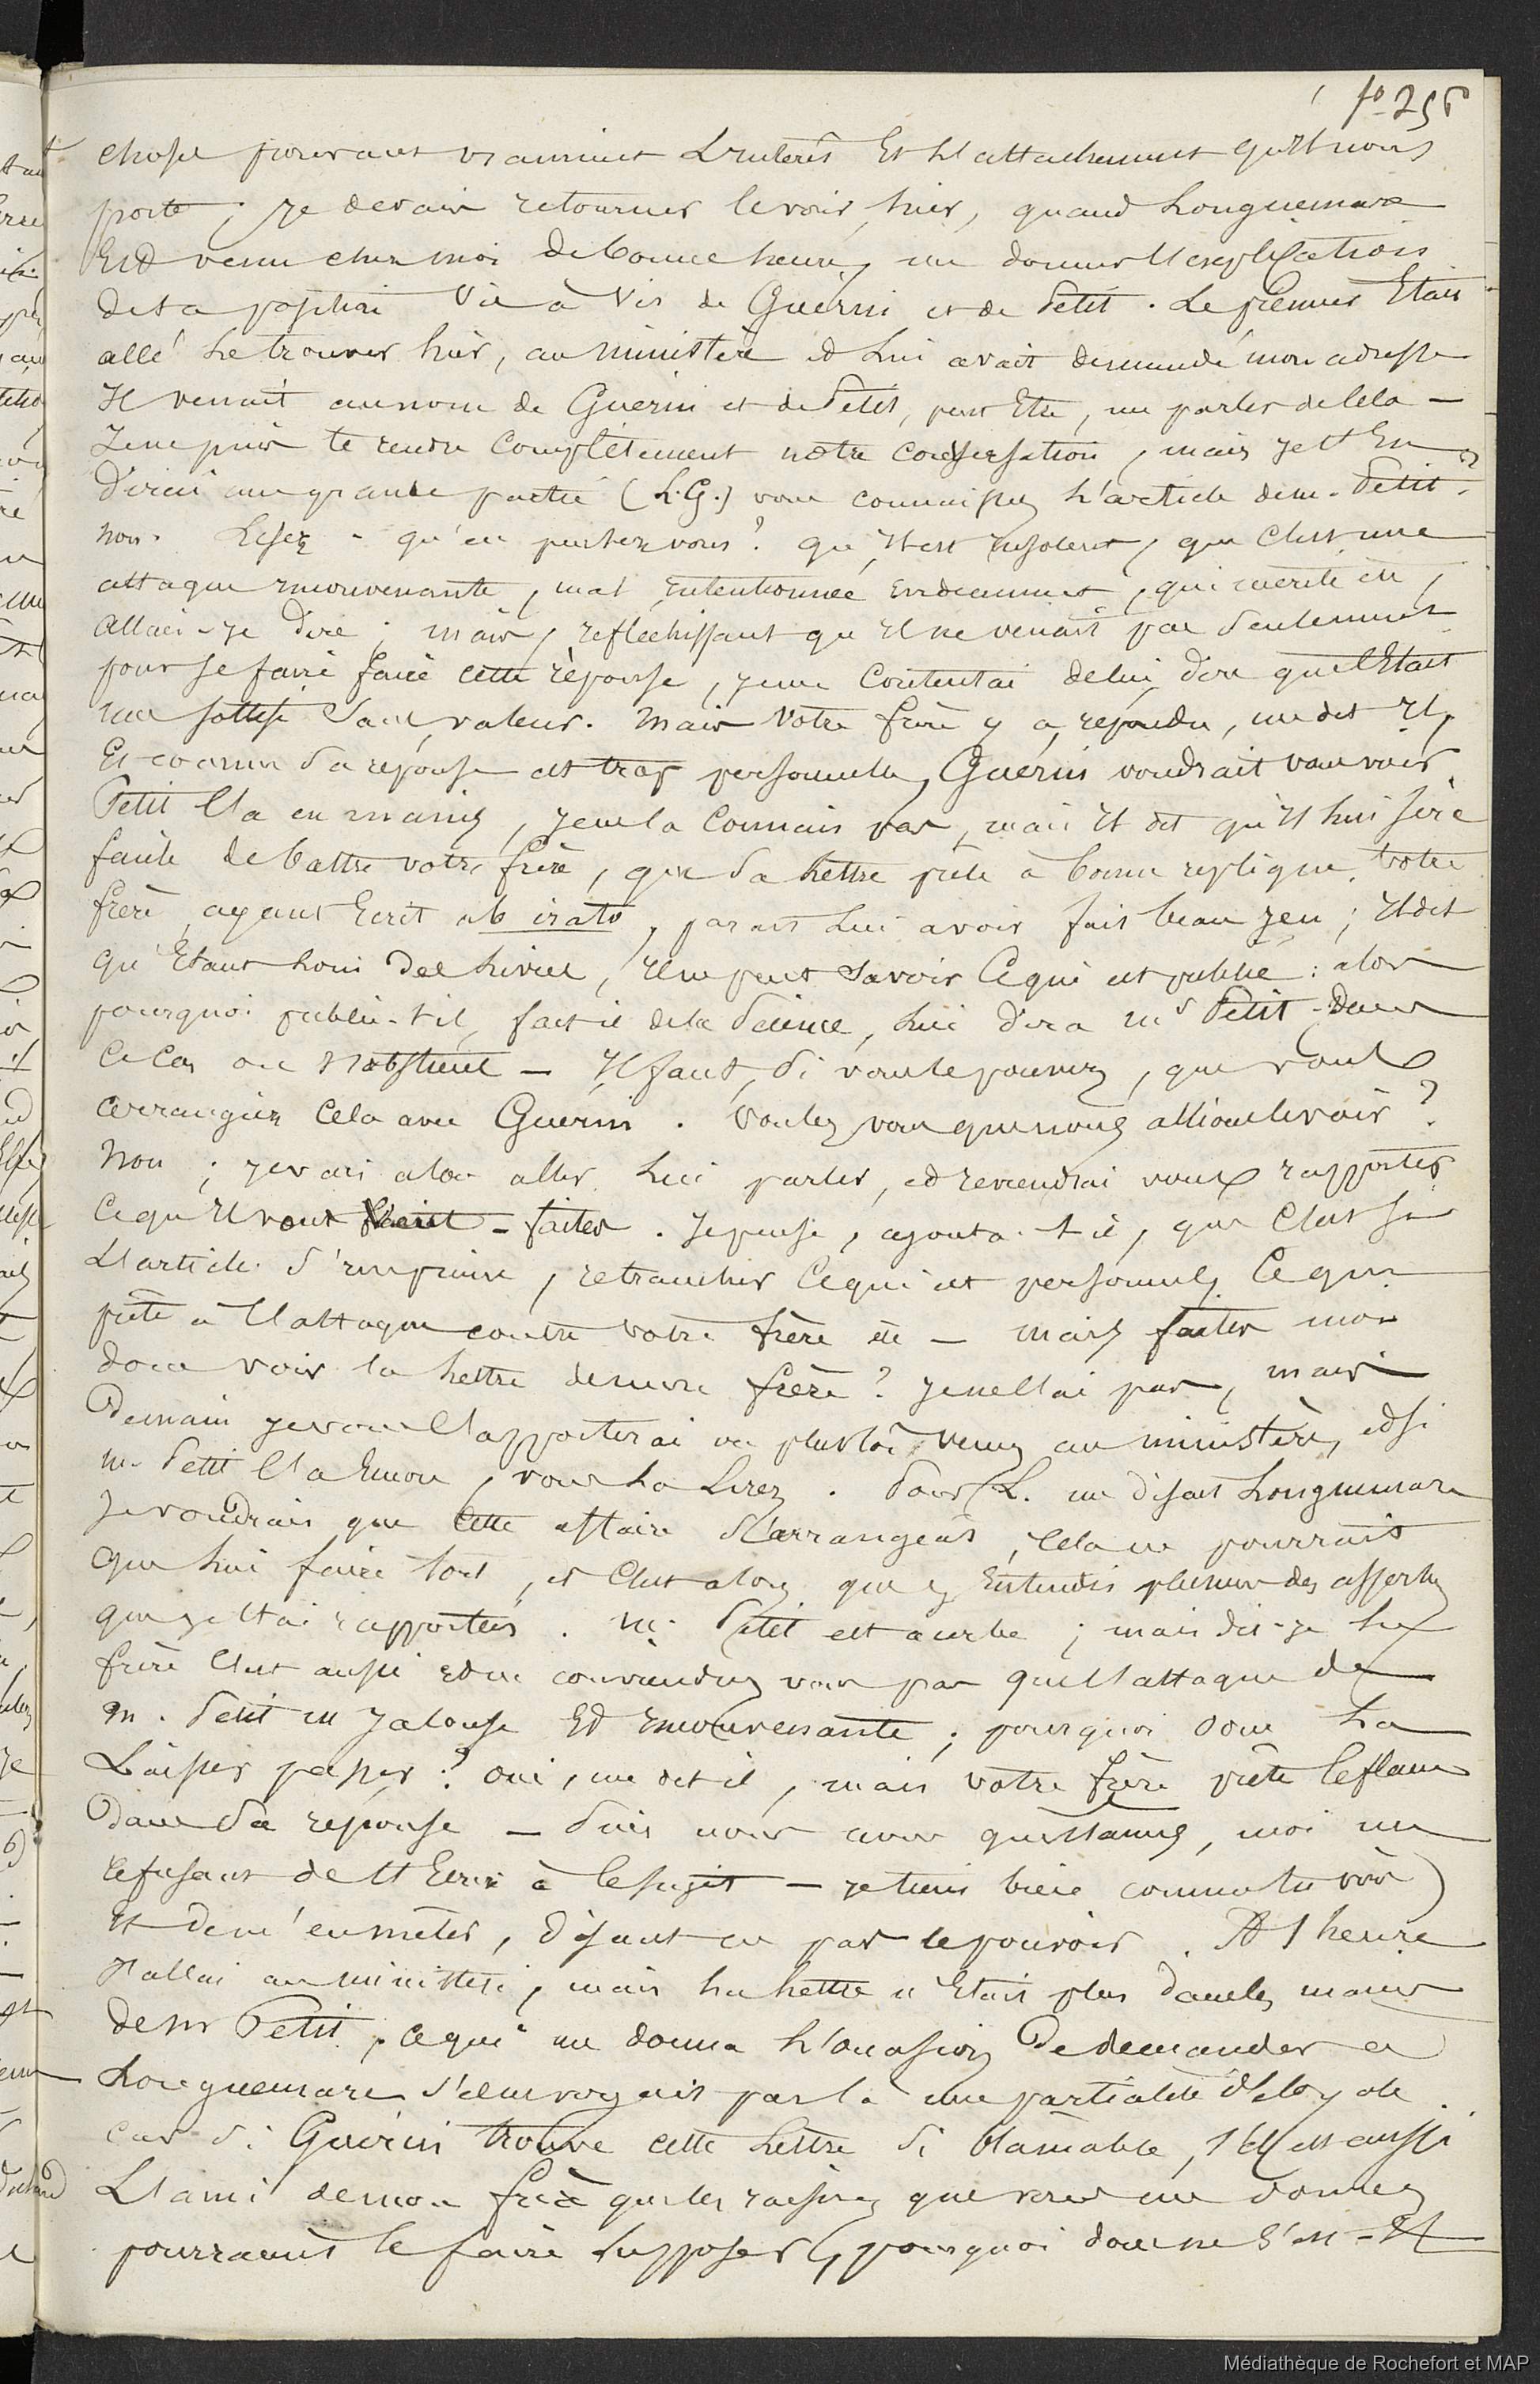 fo 256
chose prouvant vraiment l'intérêt et l'attachement qu'il nous
porte ; je devais retourner le voir, hier, quand Longuemare
est venu chez moi de bonne heure, me donner l'explication
de sa position vis à vis de Guérin et de Petit. Le premier était
allé le trouver hier, au ministère et lui avait demandé mon adresse
Il venait au nom de Guérin et de Petit, peut être, me parler de cela —
Je ne puis te rendre complètement notre conversation, mais je t'en
dirai une grande partie (L.G.) vous connaissez l'article de m. Petit ?
non. Lisez - qu'en pensez vous ? qu'il est insolent, que c'est une
attaque inconvenante, mal intentionnée évidemment, qui mérite etc,
allais-je dire ; mais, réfléchissant qu'il ne venait pas seulement
pour se faire faire cette réponse, je me contentai de lui dire que c'était
une sottise sans valeur. Mais votre frère y a répondu, me dit il,
et comme sa réponse est trop personnelle, Guérin voudrait vous voir.
Petit l'a en mains, je ne la connais pas, mais il dit qu'il lui sera
facile de battre votre frère, que sa lettre prête à bonne replique. Votre
frère, ayant écrit ab irato, parait lui avoir fait beau jeu ; il dit
qu'étant loin des livres, il ne peut savoir ce qui est publié : alors
pourquoi publie-t-il, fait il de la science, lui dira mr Petit - Dans
ce cas on s'abstient — Il faut, si vous le pouvez, que vous
arrangiez cela avec Guérin. Voulez vous que nous allions le voir ?
Non ; je vais alors aller lui parler, et reviendrai vous rapporter
ce qu'il vous faut - faites. Je pense, ajouta-t-il, que c'est si
l'article s'imprime, retrancher ce qui est personnel, ce qui
prête à l'attaque contre votre frère etc — mais faites moi
donc voir la lettre de mon frère ? je ne l'ai pas, mais
demain je vous l'apporterai ou plustôt, venez au ministère, et si
m. Petit l'a encore, vous la lirez. Pour L. me disait Longuemare
je voudrais que cette affaire s'arrangeât, cela ne pourrait
que lui faire tort, et c'est alors que j'entendis plusieurs des assertions
que je t'ai rapportées. m. Petit est acerbe ; mais dis-je le
frère l'est aussi et ne conviendrez vous pas que l'attaque de
m. Petit est jalouse et inconvenante ; pourquoi donc la
laisser passer ? oui, me dit il, mais votre frère prête le flanc
dans sa réponse — Puis nous nous quittames, moi me
refusant de t'écrire à ce sujet — je tiens bien comme tu vois)
et de m'en mêler, disant ne pas le pouvoir. A 1 heure
j'allai au ministère, mais la lettre n'était plus dans les mains
de mr Petit, ce qui me donna l'occasion de demander à
Longuemare s'il ne voyait pas là une partialité déloyale
car si Guérin trouve cette lettre si blâmable, s'il est aussi
l'ami de mon frère que les raisons que vous me donnez
pourraient le faire supposer, pourquoi donc ne s'est-il
Médiathèque de Rochefort et MAP